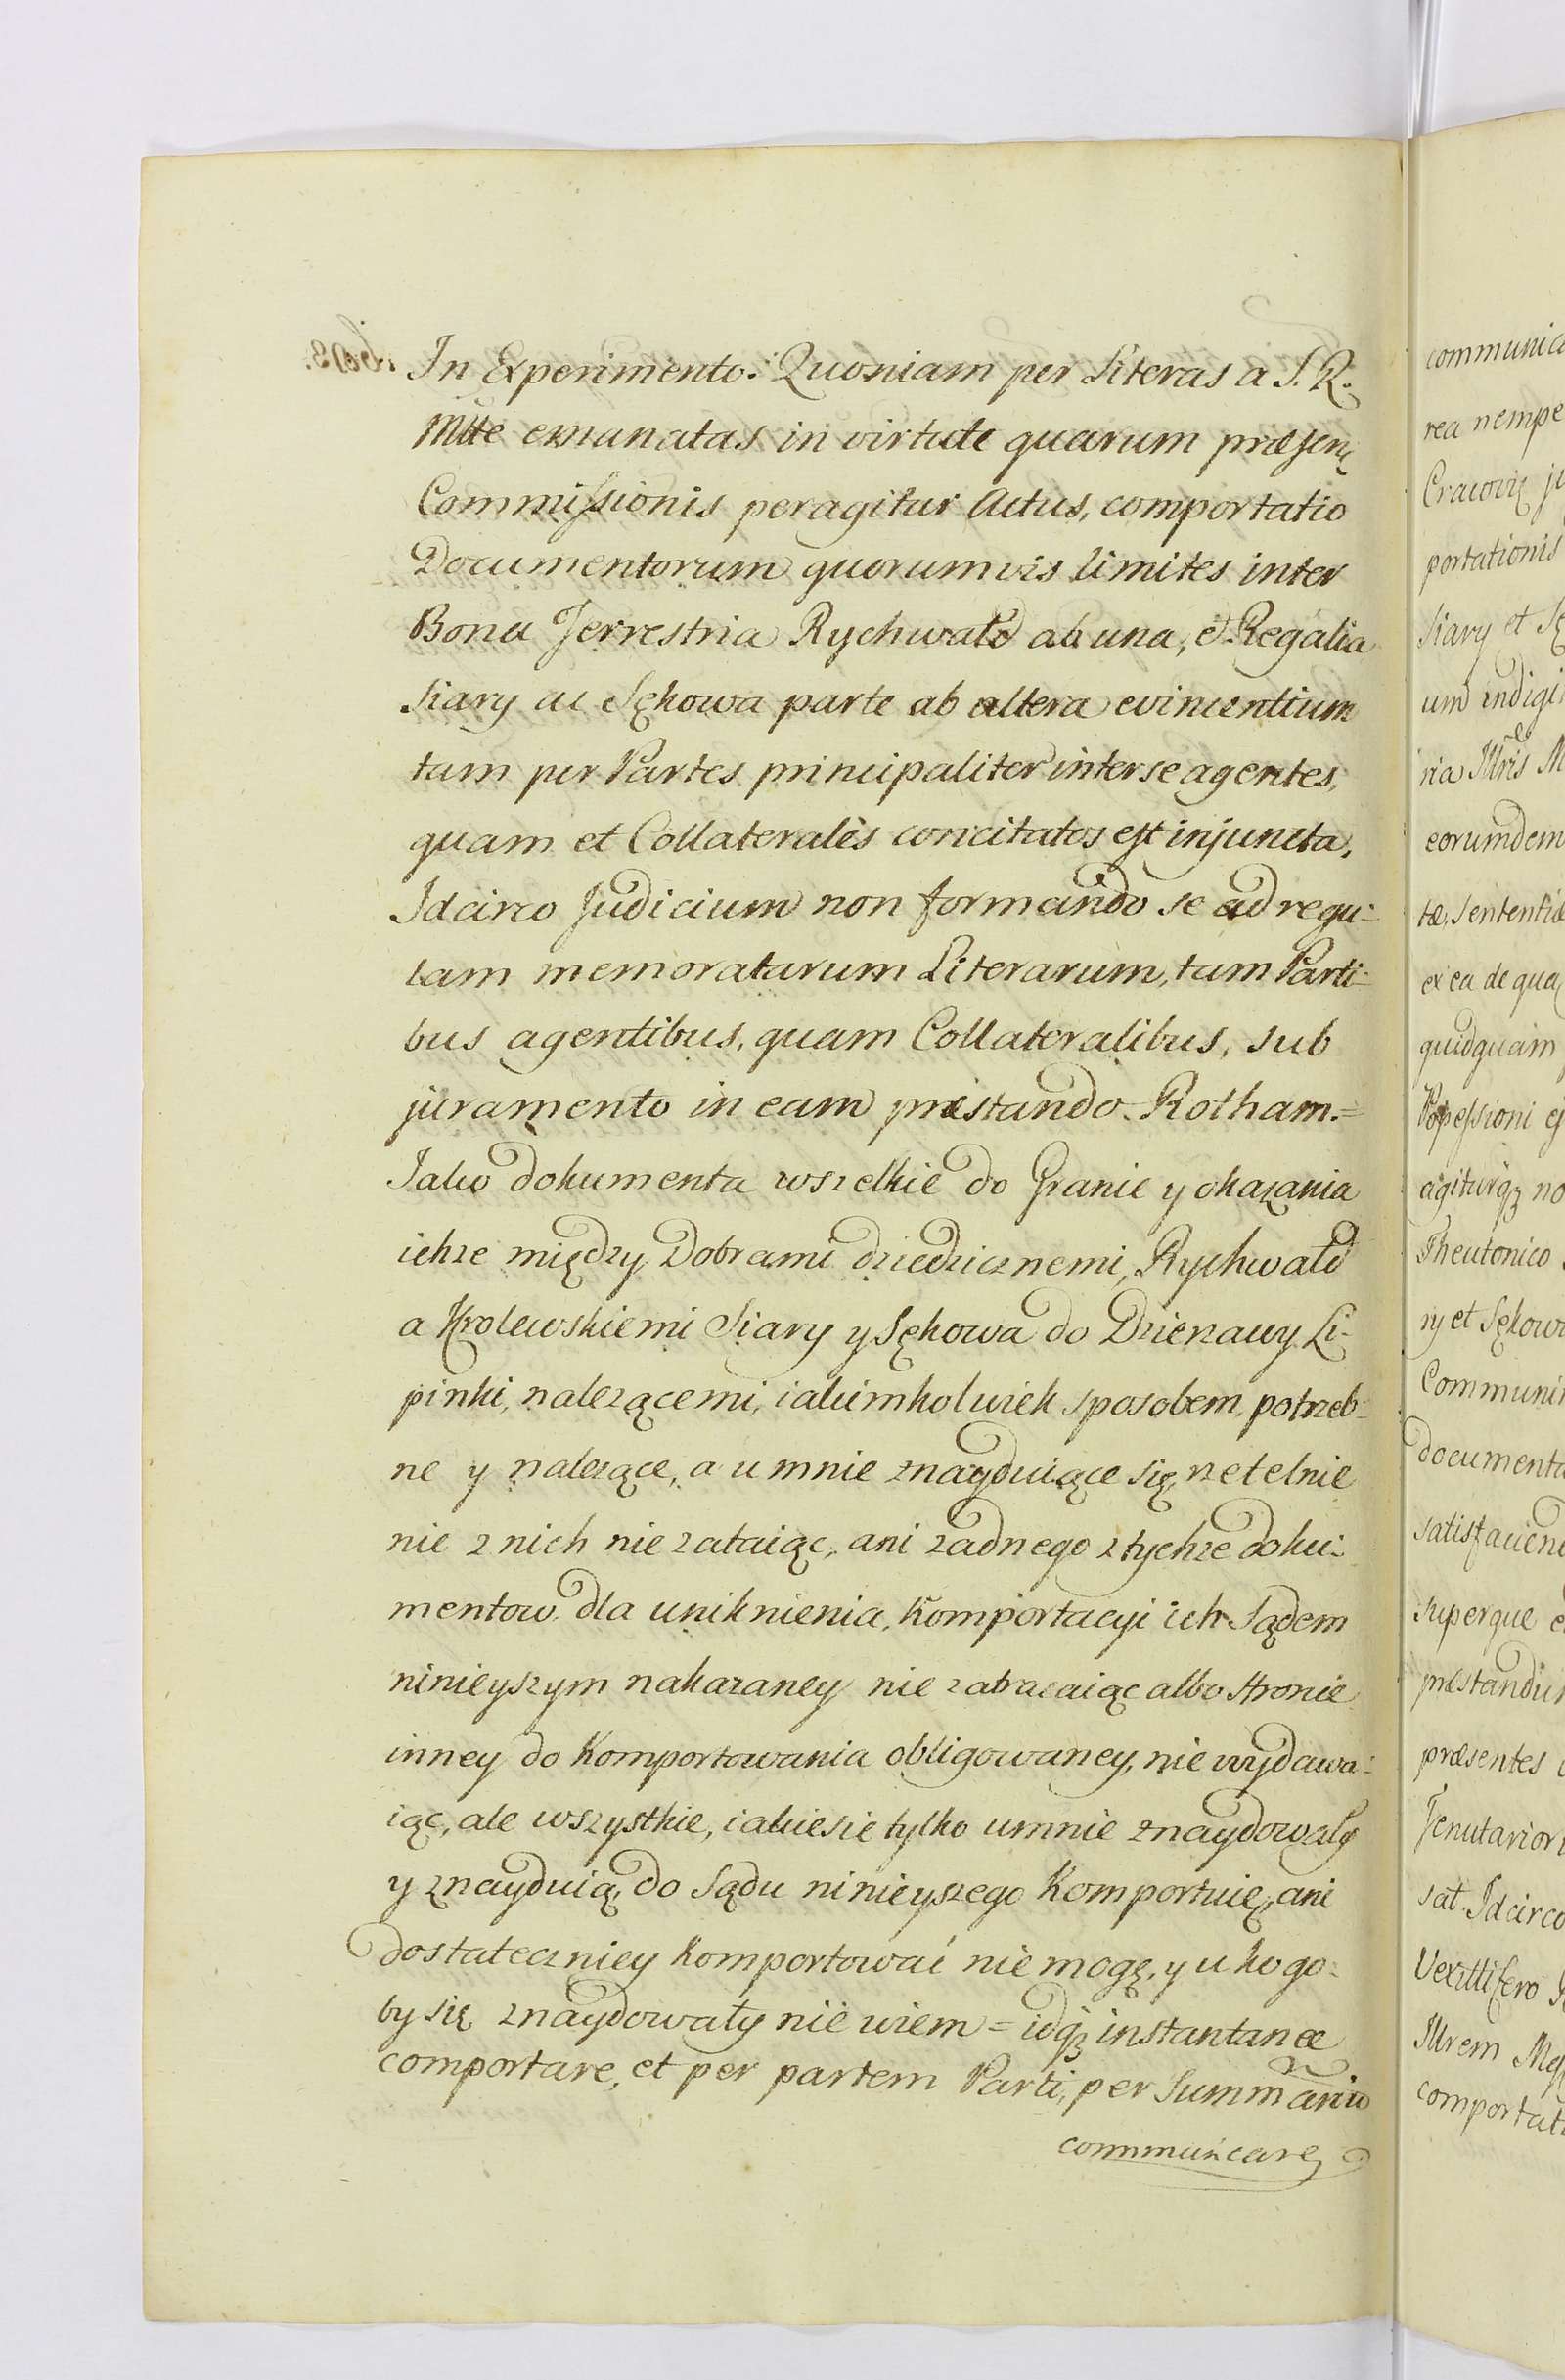 In Experimento. Quoniam per Literas a S. R.
Mtte emanatas in virtute quarum præsenę
Commissionis peragitur Actus, comportatio
Documentorum quorumvis limites inter
Bona Terrestria Rychwałd ab una, et Regalia
Siary ac Sękowa parte ab altera evincentium
tam per Partes principaliter inter se agentes,
quam et Collaterales concitatos est injuncta,
Idcirco Judicium non formando se ad regu-
lam memoratarum Literarum, tam Parti-
bus agentibus, quam Collateralibus, sub
juramento in eam præstando Rotham.=
Jako dokumenta wszelkie do Granic y okazania
ichze między Dobrami dziedzicznemi, Rychwałd
a Krolewskiemi Siary y Sękowa do Dzierzawy Li-
pinki, nalezącemi, iakimkolwiek sposobem potrzeb-
ne y nalezące, a u mnie znayduiące się, rzetelnie
nic z nich nie zataiąc, ani zadnego z tychze doku-
mentow dla uniknienia, Komportacyi ich Sądem
ninieyszym nakazaney nie zatracaiąc albo stronie
inney do Komportowania obligowaney, nie wydawa-
iąc, ale wszystkie, iakie sie tylko umnie znaydowały
y znayduią, do Sądu ninieyszego Komportuię, ani
dostateczniey Komportować nie mogę, y u kogo-
by się znaydowały nie wiem = idqz instantanee
comportare, et per partem Parti, per Summariũ
communicare
communica
rea nempe
Cracovię
portationis
Siary et
um indigi
ria Illris M
eorumdem
tæ, Sententiæ
ex ea de qua
quidquam
agiturqz no
Theutonico
ry et Sękow
Communi
documenta
satisfacien
superque e
præstandu
præsentes
Tenutarior
sat. Idcirco
Vexillifero
Illrem Mag
comportat